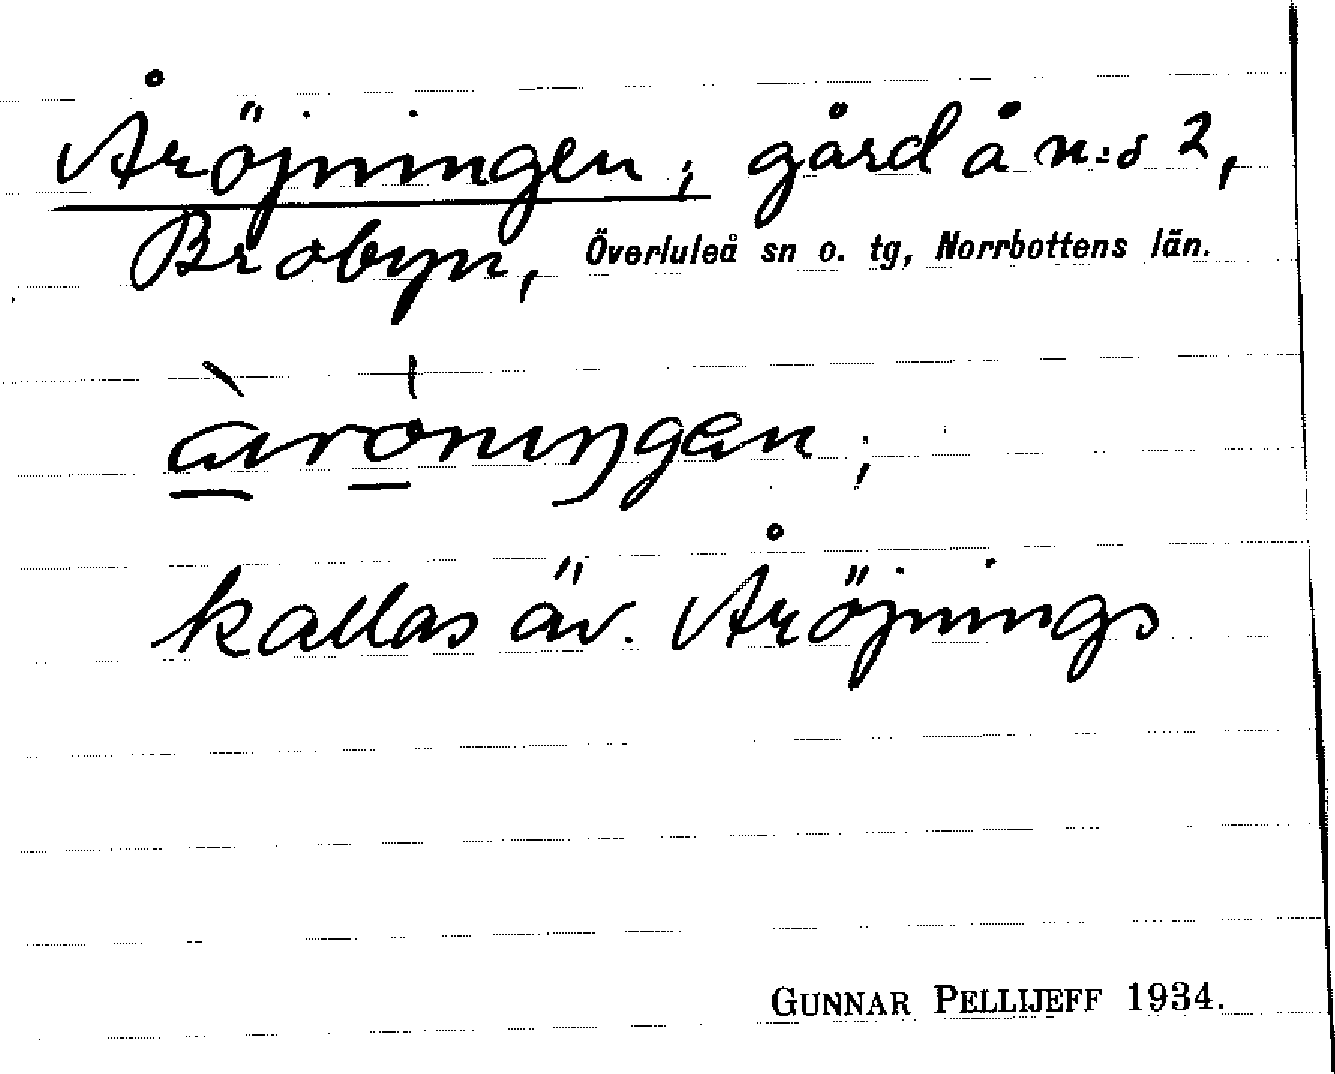 Åröjningen; gård å n:o 2,
Brobyn, Överluleå sn o. tg, Norrbottens län.
kallas äv. Åröjnings
GUNNAR PELLIJEFF 1934.